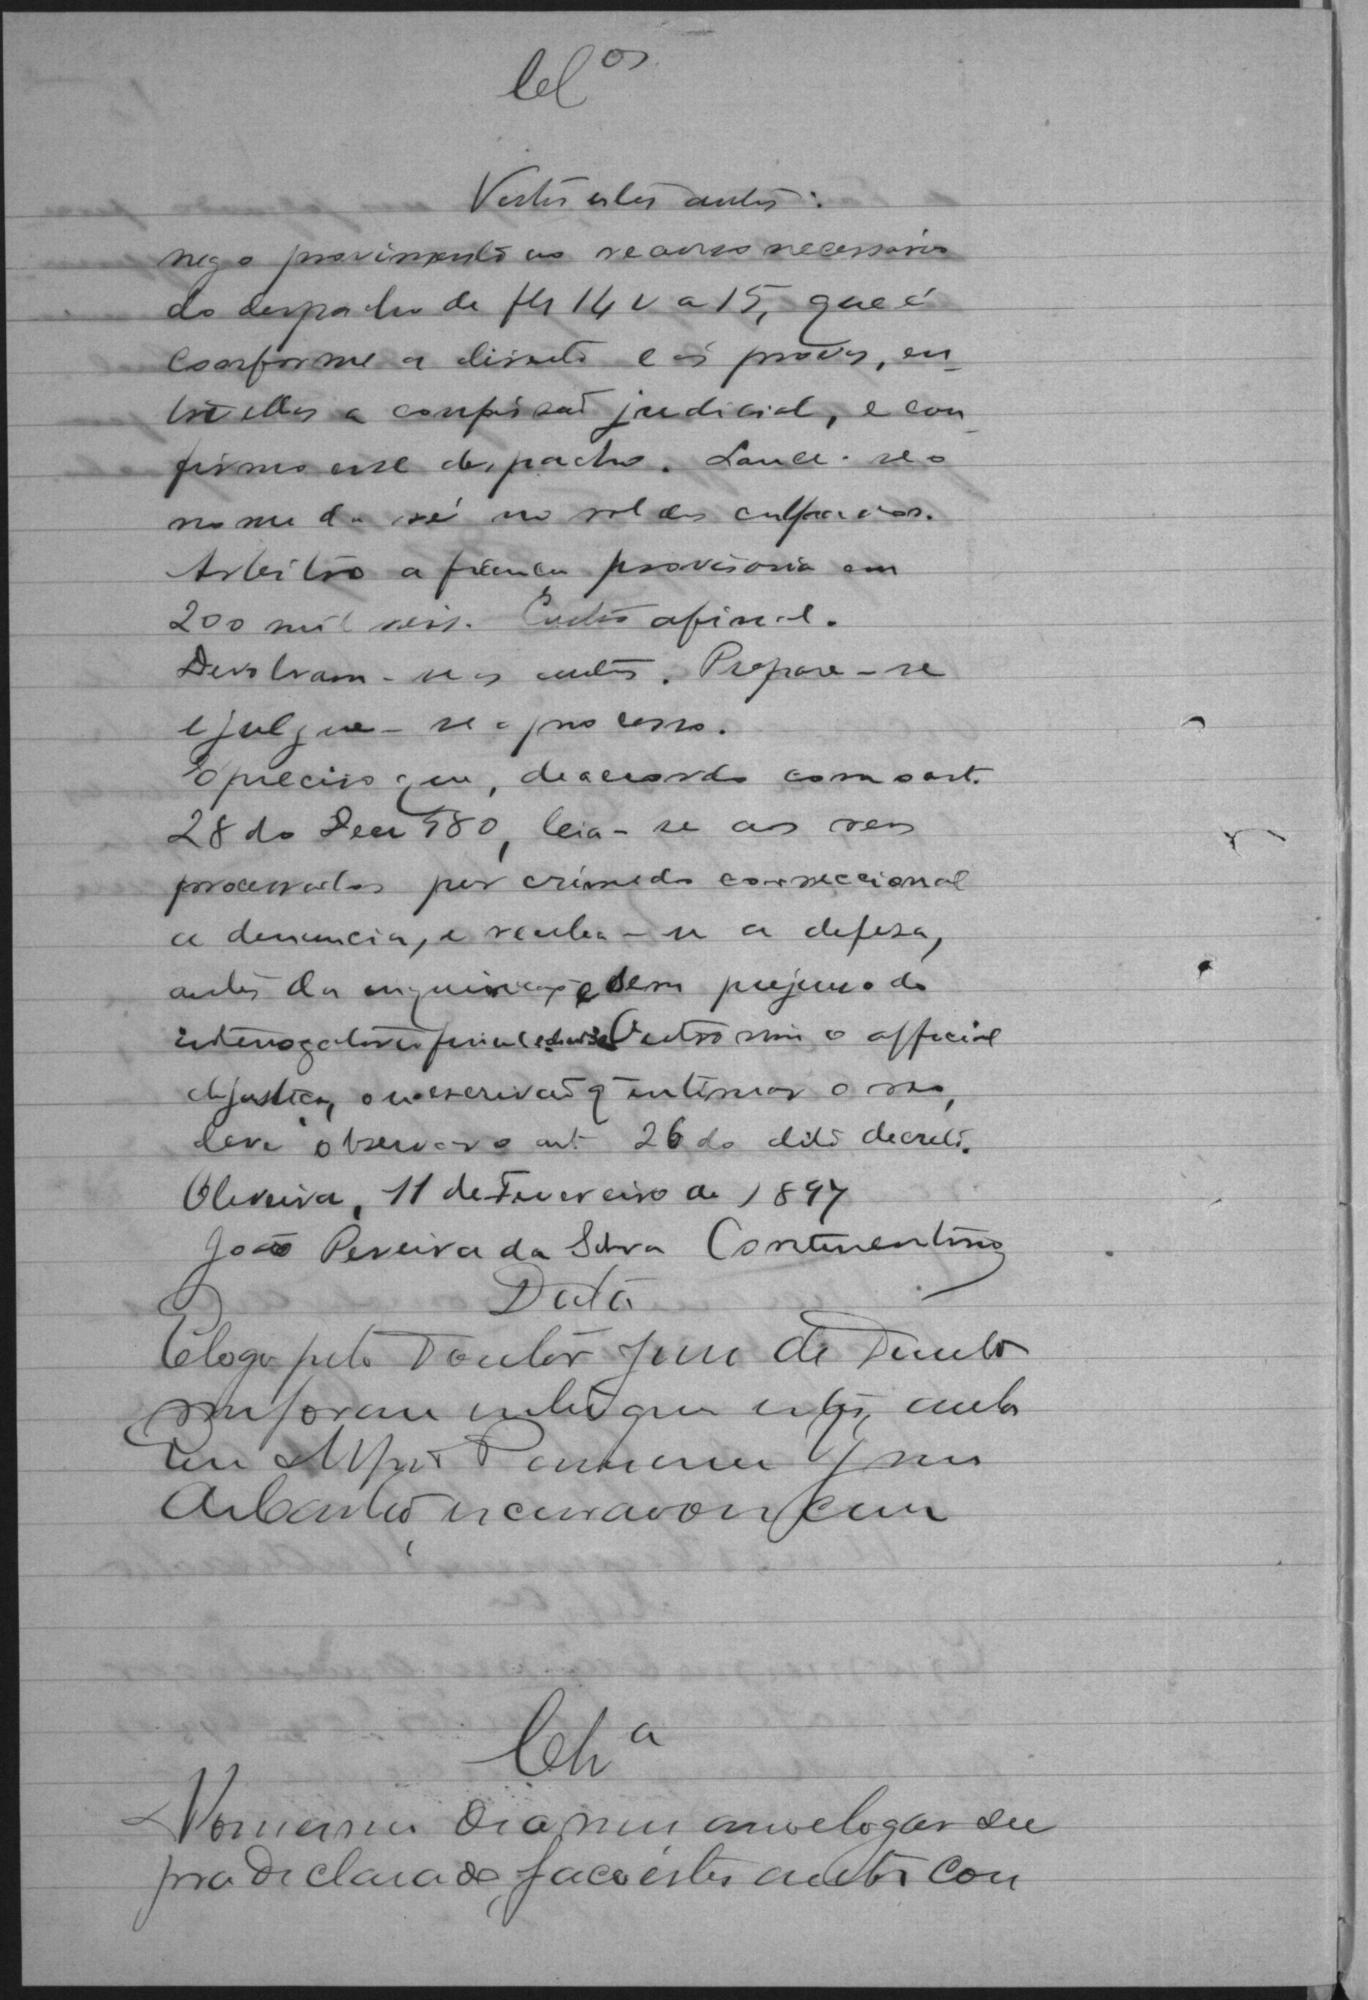 Cl.os
Vistos estes autos:
nego provimento ao recurso necessario
do despacho de fls 14 v a 15, que é
conforme a direito e ás provas, en-
tre ellas a confissão judicial, e con-
firmo esse despacho. Lance-se o
nome da ré no rol dos culpados.
Arbitro a fiança provisoria em
200 mil reis. Custas afinal.
Devolvam-se os autos. Prepare-se
e julgue-se o processo.
É preciso que, de accordo com o art.
28 do Decr 580, leia-se aos reos
processados por crime do correccional
a denuncia, e receba-se a defesa,
antes da inquirição e sem prejuizo do
interogatorio final Outro sim o official
de justiça, ou escrivão q intimar o reo,
deve observar o art 26 do dito decreto.
Oliveira, 11 de Fevereiro de 1897
João Pereira da Silva Continentino
Data
E logo pelo Doutor Juiz de Direito
me foram entregues estes autos
Eu escrivão
Clz.a
No mesmo dia mez anno e logar su
pra declarado, faço estes autos con